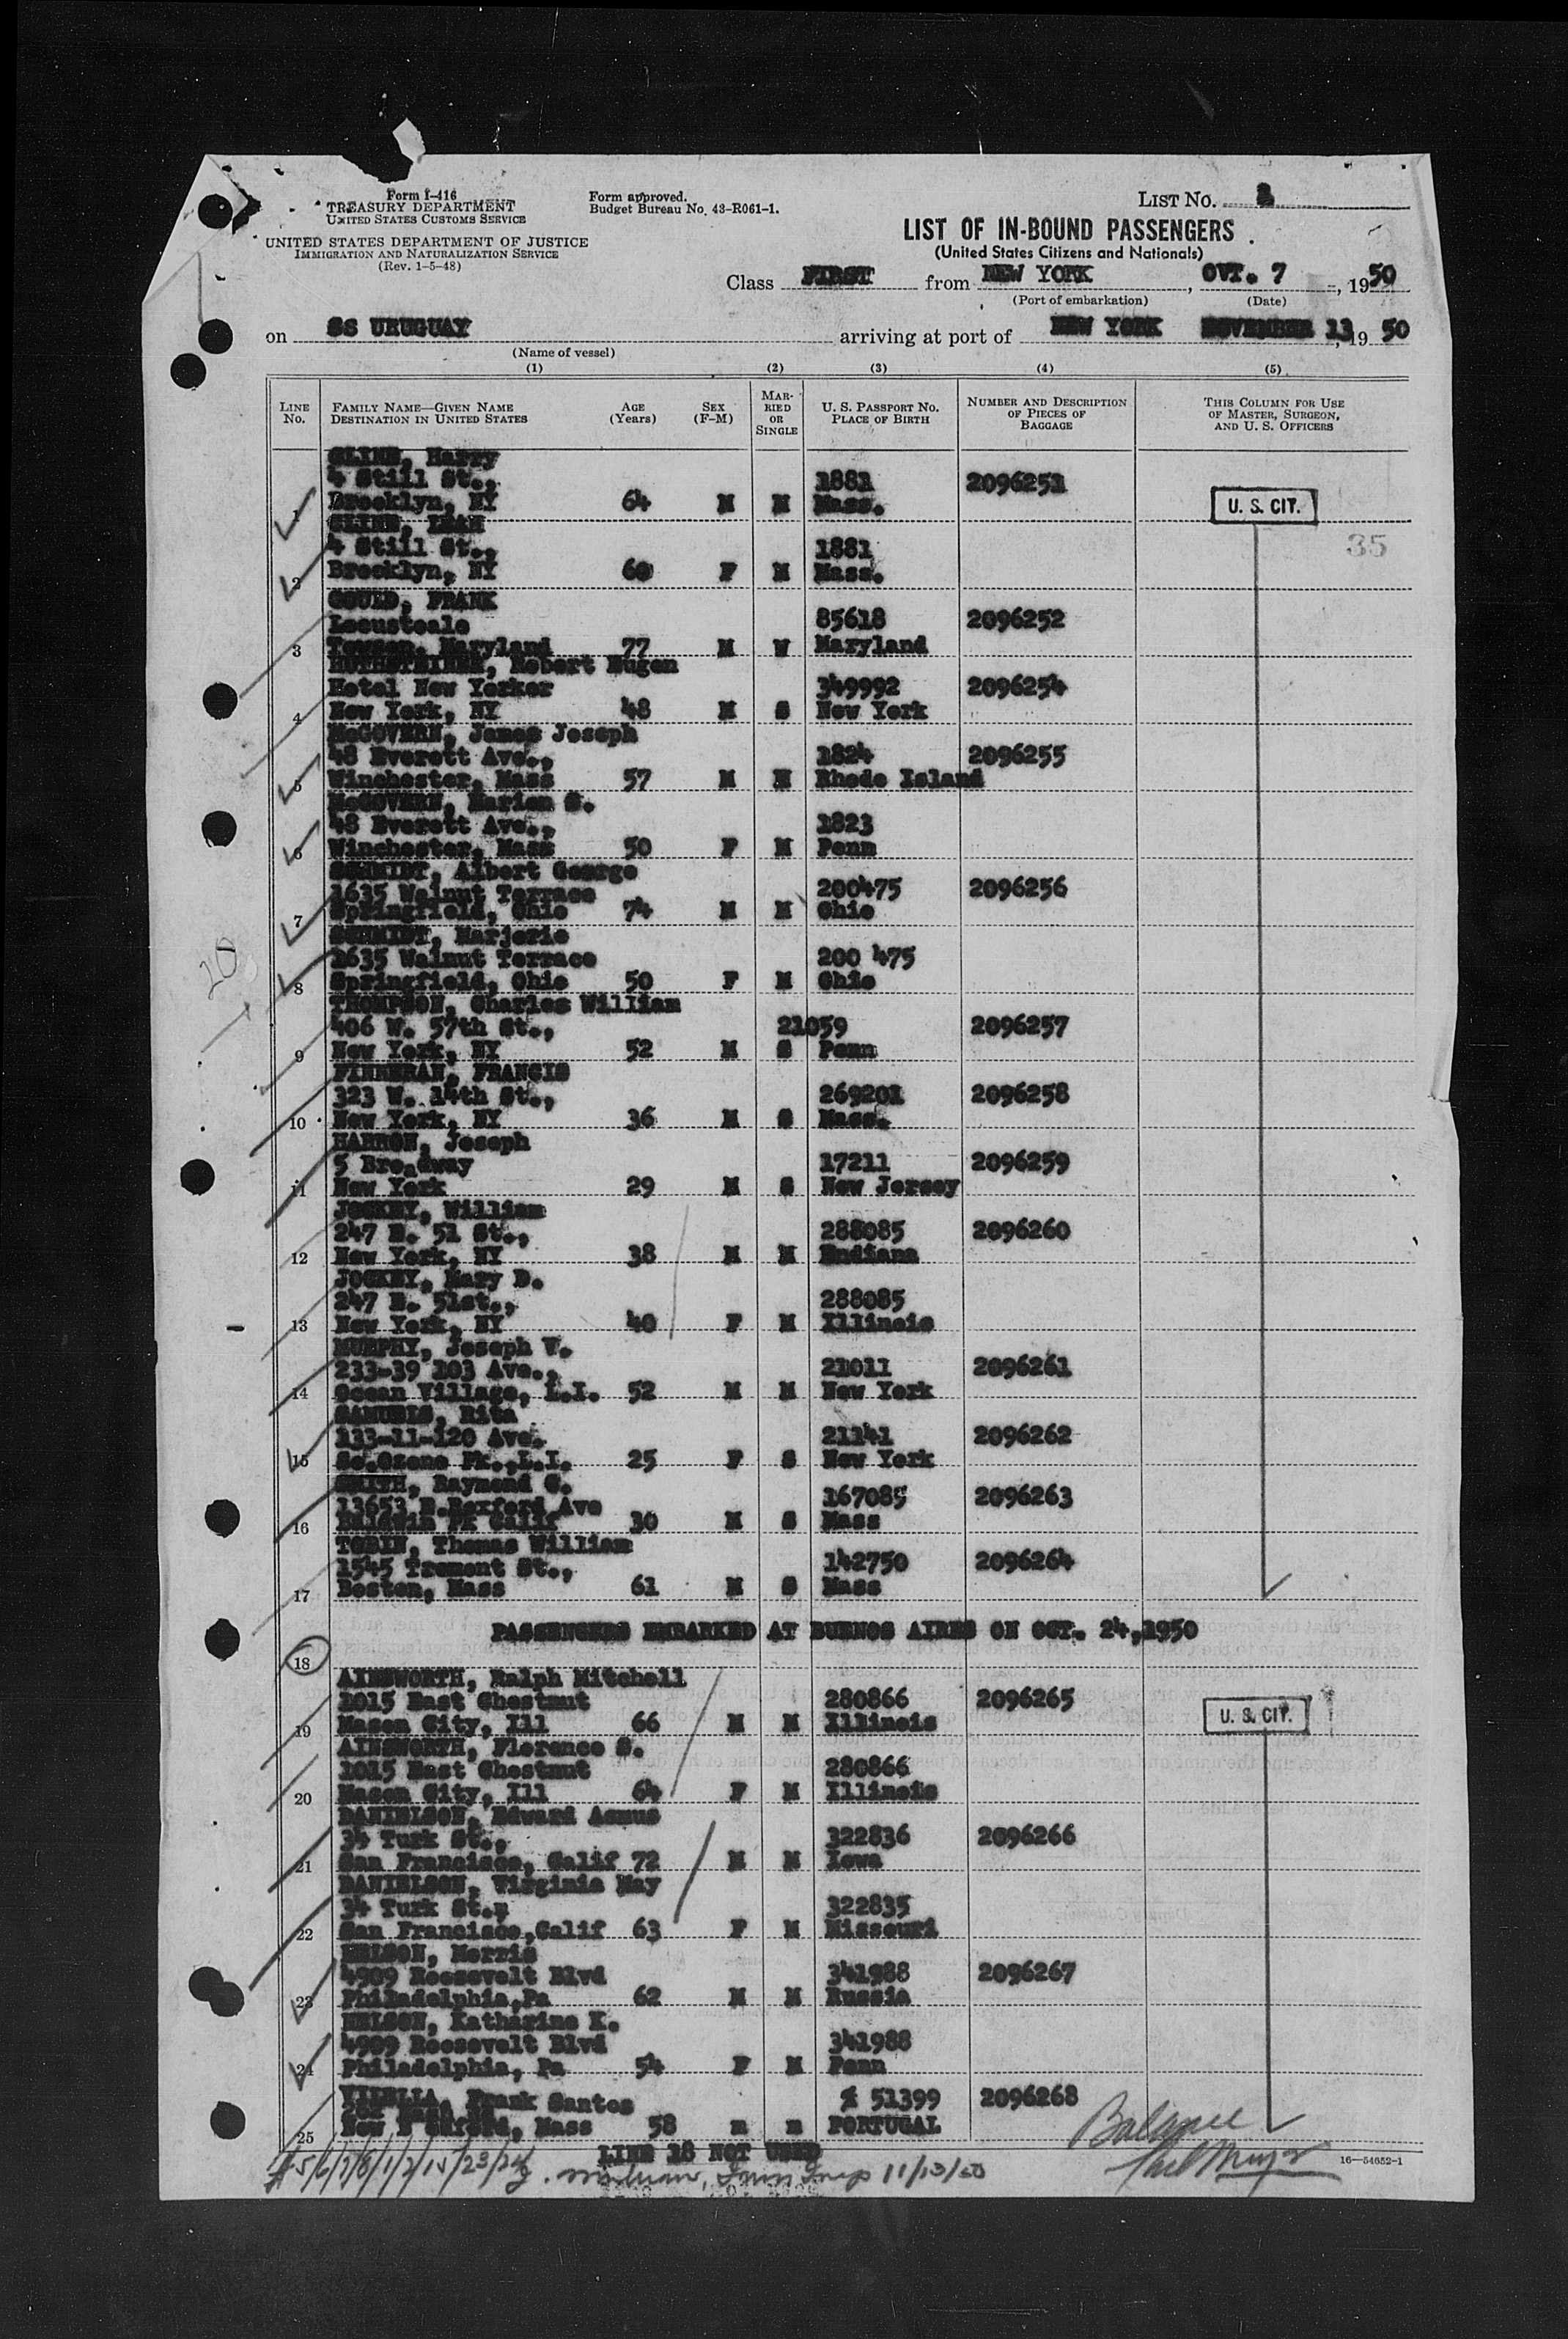 Form I-416
TREASURY DEPARTMENT
UNITED STATES CUSTOMS SERVICE
UNITED STATES DEPARTMENT OF JUSTICE
IMMIGRATION AND NATURALIZATION SERVICE
(Rev. 1-5-48)
Form approved.
Budget Bureau No. 43-R061-1.
LIST NO.
LIST OF IN-BOUND PASSENGERS
(United States Citizens and Nationals)
Class FIRST from NEW YORK, OVT. 7, 1950
(Port of embarkation) (Date)
on SS URUGUAY arriving at port of NEW YORK NOVEMBER 13, 19 50
(Name of vessel)
(1) (2) (3) (4) (5)
LINE No.
FAMILY NAME—GIVEN NAME
DESTINATION IN UNITED STATES
AGE (Years)
SEX (F-M)
MARRIED OR SINGLE
U. S. PASSPORT NO.
PLACE OF BIRTH
NUMBER AND DESCRIPTION OF PIECES OF BAGGAGE
THIS COLUMN FOR USE OF MASTER, SURGEON, AND U. S. OFFICERS
Harry
4 Still St., 1881 2096251
1 Brooklyn, NY 64 M M Mass. U. S. CIT.
LEAH
4 Still St., 1881 35
2 Brooklyn, NY 60 F M Mass.
GOULD, FRANK
85618 2096252
3 Towson, Maryland 77 M W Maryland
Robert Eugen
Hotel New Yorker 349992 2096254
4 New York, NY 48 M S New York
McGOVERN, James Joseph
48 Everett Ave., 1824 2096255
5 Winchester, Mass 57 M M Rhode Island
McGOVERN, Marion S.
48 Everett Ave., 1823
6 Winchester, Mass 50 F M Penn
SCHMIDT, Albert George
1635 Walnut Terrace 200475 2096256
7 Springfield, Ohio 74 M M Ohio
SCHMIDT, Marjorie
1635 Walnut Terrace 200 475
8 Springfield, Ohio 50 F M Ohio
THOMPSON, Charles William
406 W. 57th St., 21059 2096257
9 New York, NY 52 M S Penn
FINNERAN, FRANCIS
323 W. 14th St., 269201 2096258
10 New York, NY 36 M S Mass.
Joseph
5 Broadway 17211 2096259
11 New York 29 M S New Jersey
JOCKEY, William
247 E. 51 St., 288085 2096260
12 New York, NY 38 M M Endiana
JOCKEY, Mary D.
247 E. 51st., 288085
13 New York, NY 40 F M Illinois
MURPHY, Joseph V.
233-39 103 Ave., 21011 2096261
14 Ocean Village, L.I. 52 M M New York
SAMUELS, Rita
133-11-120 Ave. 21141 2096262
15 So.Ozone Pk.,L.I. 25 F S New York
SMITH, Raymond G.
13653 E.Rexford Ave 167085 2096263
16 Baldwin Pk Calif 30 M S Mass
TOBIN, Thomas William
1545 Tremont St., 142750 2096264
17 Boston, Mass 61 M S Mass
PASSENGERS EMBARKED AT BUENOS AIRES ON OCT. 24,1950
18
AINSWORTH, Ralph Mitchell
1015 East Chestnut 280866 2096265
19 Mason City, Ill 66 M M Illinois U. S. CIT.
AINSWORTH, Florence S.
1015 East Chestnut 280866
20 Mason City, Ill 64 F M Illinois
DANIELSON, Edward Asmus
34 Turk St., 322836 2096266
21 San Francisco, Calif 72 M M Iowa
DANIELSON, Virginia May
34 Turk St., 322835
22 San Francisco,Calif 63 F M Missouri
NELSON, Morris
4909 Roosevelt Blvd 341988 2096267
23 Philadelphia,Pa 62 M M Russia
NELSON, Katharine K.
4909 Roosevelt Blvd 341988
24 Philadelphia, Pa 54 F M Penn
Frank Santos
51399 2096268
25 Mass 58 m m PORTUGAL
LINE 18 NOT USED
Balance
#5/6/7/8/1/2/15/23/24
11/13/50
16—54652-1